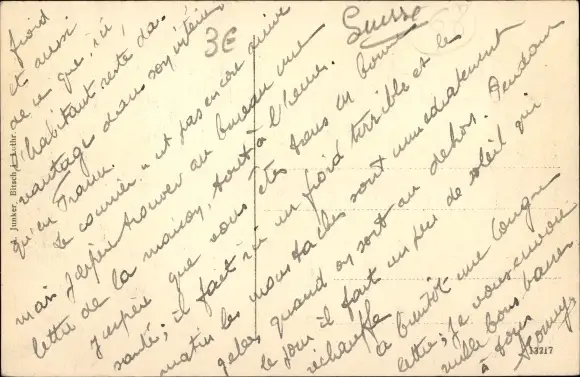 froid
et aussi
de ce que, ici,
l'habitant reste da-
vantage dans son intérieur
qu'en France.
Le courrier n'est pas encore arrivé
mais j'espère trouver au bureau une
lettre de la maison, tout à l'heure.
J'espère que vous êtes tous en bonne
santé; il fait ici un froid terrible et le
matin les moustaches sont immédiatement
gelées quand on sort au dehors. Pendant
le jour il fait un peu de soleil qui
réchauffe
à bientôt une longue
lettre; je vous envoie
mille bons baisers
à tous
Suisse
3€
Junker, Bitsch, Lothr.
33217